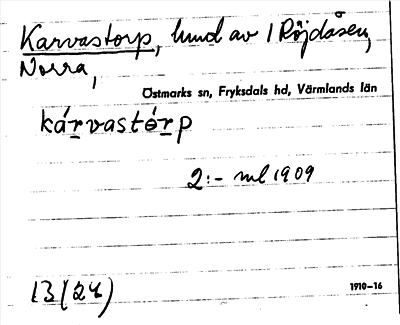 Karvastorp, hmd av 1 Röjdåsen,
Norra,
Östmarks sn, Fryksdals hd, Värmlands län
kárvastórp
2:- ml 1909
13 (24)
1910-16